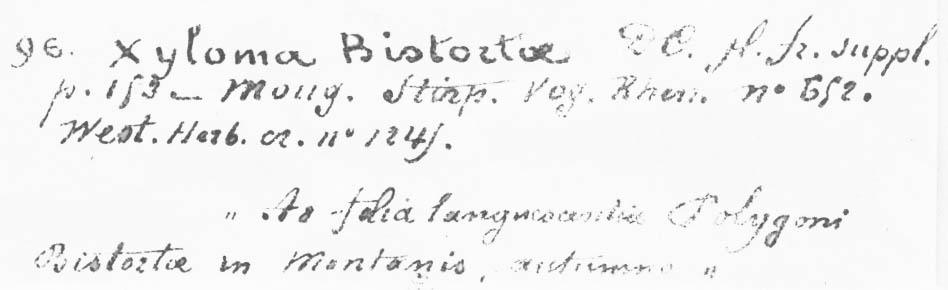 96. Xyloma Bistortæ DC. fl. fr. suppl.
p. 153 — Moug. Stirp. Vog. Rhen. n° 652.
West. Herb. cr. n° 1245.
„ Ad folia languescentia Polygoni
Bistortæ in Montanis, autumno „